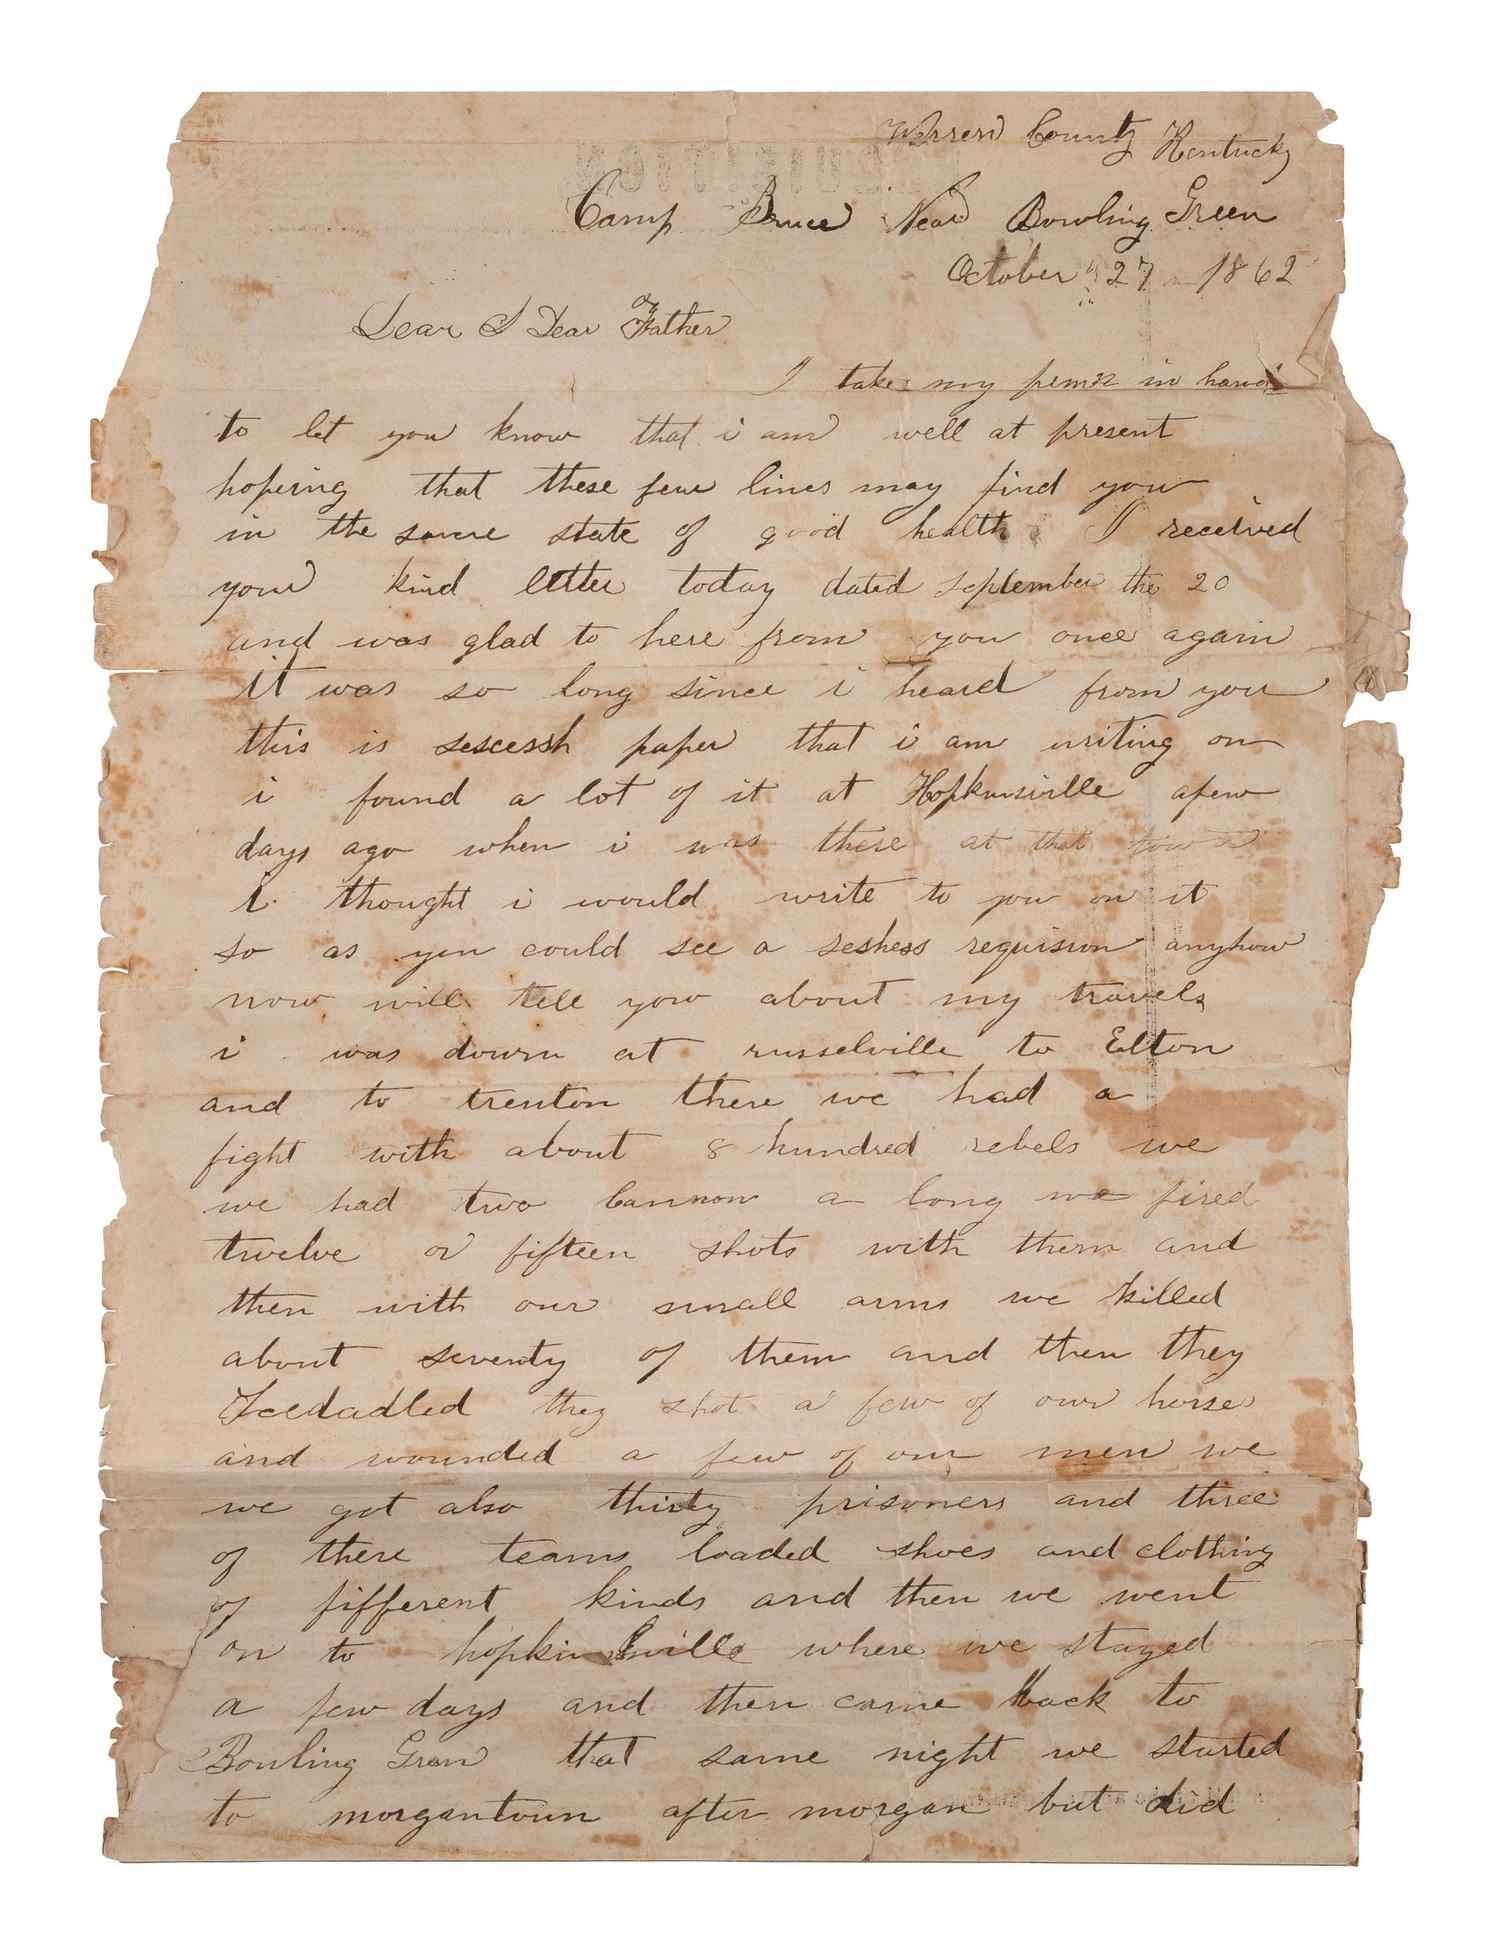 REQUISITION
Warren County Kentucky
Camp Bruce Near Bowling Green
October 27 1862
Dear Dear Father
I take my penn in hand
to let you know that i am well at present
hopeing that these few lines may find you
in the same state of good health I received
your kind letter today dated september the 20
and was glad to here from you once again
it was so long since i heard from you
this is sescessh paper that i am writing on
i found a lot of it at Hopkinsville afew
days ago when i was there at that town
i thought i would write to you on it
so as you could see a seshess requision anyhow
now will tell you about my travels
i was down at russelville to Elton
and to trenton there we had a
fight with about 8 hundred rebels we
we had two Cannon a long we fired
twelve or fifteen shots with them and
then with our small arms we killed
about seventy of them and then they
Sceedadled they shot a few of our horses
and wounded a few of our men we
we got also thirty prisoners and three
of there teams loaded shoes and clothing
of fifferent kinds and then we went
on to hopkinsville where we stayed
a few days and then came back to
Bowling Green that same night we started
to morgantoun after morgan but did